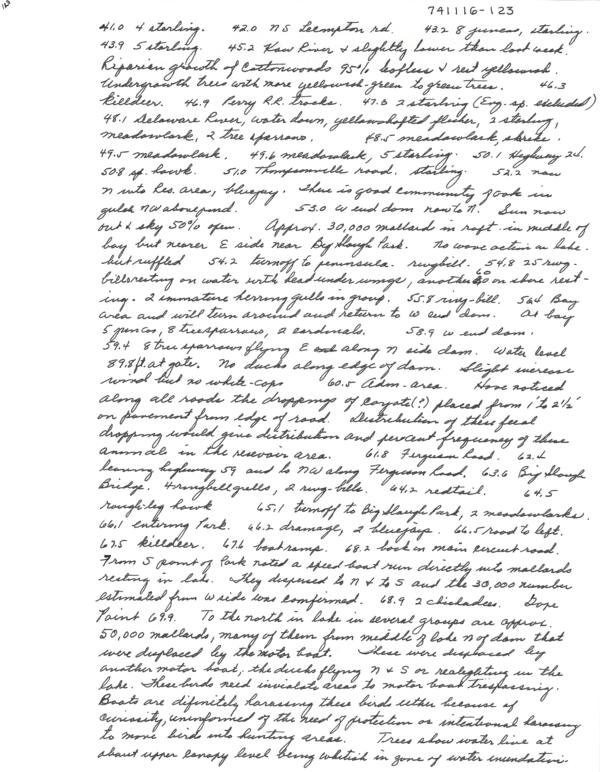 123
741116-123
41.0 4 starling. 42.0 N S Lecompton rd. 43.2 8 juncos, starling.
43.9 5 starling. 45.2 Kaw River & slightly lower than last week.
Riparian growth of Cottonwoods 95% leafless & rest yellowish.
Undergrowth trees with more yellowish-green to green trees. 46.3
killdeer. 46.9 Perry R.R. tracks. 47.8 2 starling (Eng. sp. excluded)
48.1 Delaware River, water down, yellowshafted flicker, 2 starling,
meadowlark, 2 tree sparrows. 48.5 meadowlark, shrike.
49.5 meadowlark. 49.6 meadowlark, 5 starling. 50.1 Highway 24.
50.8 sp. hawk. 51.0 Thompsonville road. starling. 52.2 now
N into Res. area, bluejay. There is good community look in
gulch NW above pond. 53.0 W end dam now to N. Sun now
out & sky 50% open. Approx. 30,000 mallard in raft in middle of
bay but nearer E side near Big Slough Park. No wave action on lake.
but ruffled 54.2 turnoff to peninsula. ringbill. 54.8 25 ring-
bills resting on water with head under wings, another 60 on shore rest-
ing. 2 immature herring gulls in group. 55.8 ring-bill. 56.4 Bay
area and will turn around and return to W end dam. At bay
5 juncos, 8 tree sparrows, 2 cardinals. 58.9 W end dam.
59.4 8 tree sparrows flying E along N side dam. Water level
89.8 ft. at gate. No ducks along edge of dam. Slight increase
wind but no white-caps 60.5 Adm. area. Have noticed
along all roads the droppings of coyote(?) placed from 1' to 2½'
on pavement from edge of road. Distribution of these fecal
dropping would give distribution and percent frequency of these
animals in the resevoir area. 61.8 Ferguson Road. 62.4
leaving highway 59 and to NW along Ferguson Road. 63.6 Big Slough
Bridge. 4 ringbill gulls, 2 ring-bills. 64.2 redtail. 64.5
rough-leg hawk 65.1 turnoff to Big Slough Park, 2 meadowlarks.
66.1 entering Park. 66.2 drainage, 2 bluejays. 66.5 road to left.
67.5 killdeer. 67.6 boat ramp. 68.2 back on main circuit road.
From S point of Park noted a speed boat run directly into mallards
resting in lake. They dispersed to N & to S and the 30,000 number
estimated from W side was confirmed. 68.9 2 chickadees.
Point 69.9. To the north in lake in several groups are approx.
50,000 mallards, many of them from middle of lake N of dam that
were displaced by the motor boat. These were displaced by
another motor boat, the ducks flying N & S or realighting in the
lake. These birds need inviolate areas to motor boat trespassing.
Boats are difinitely harassing these bird either because of
curiosity, uninformed of the need of protection or intentional harassing
to move birds into hunting areas. Trees show water line at
about upper canopy level being whitish in zone of water inundation.